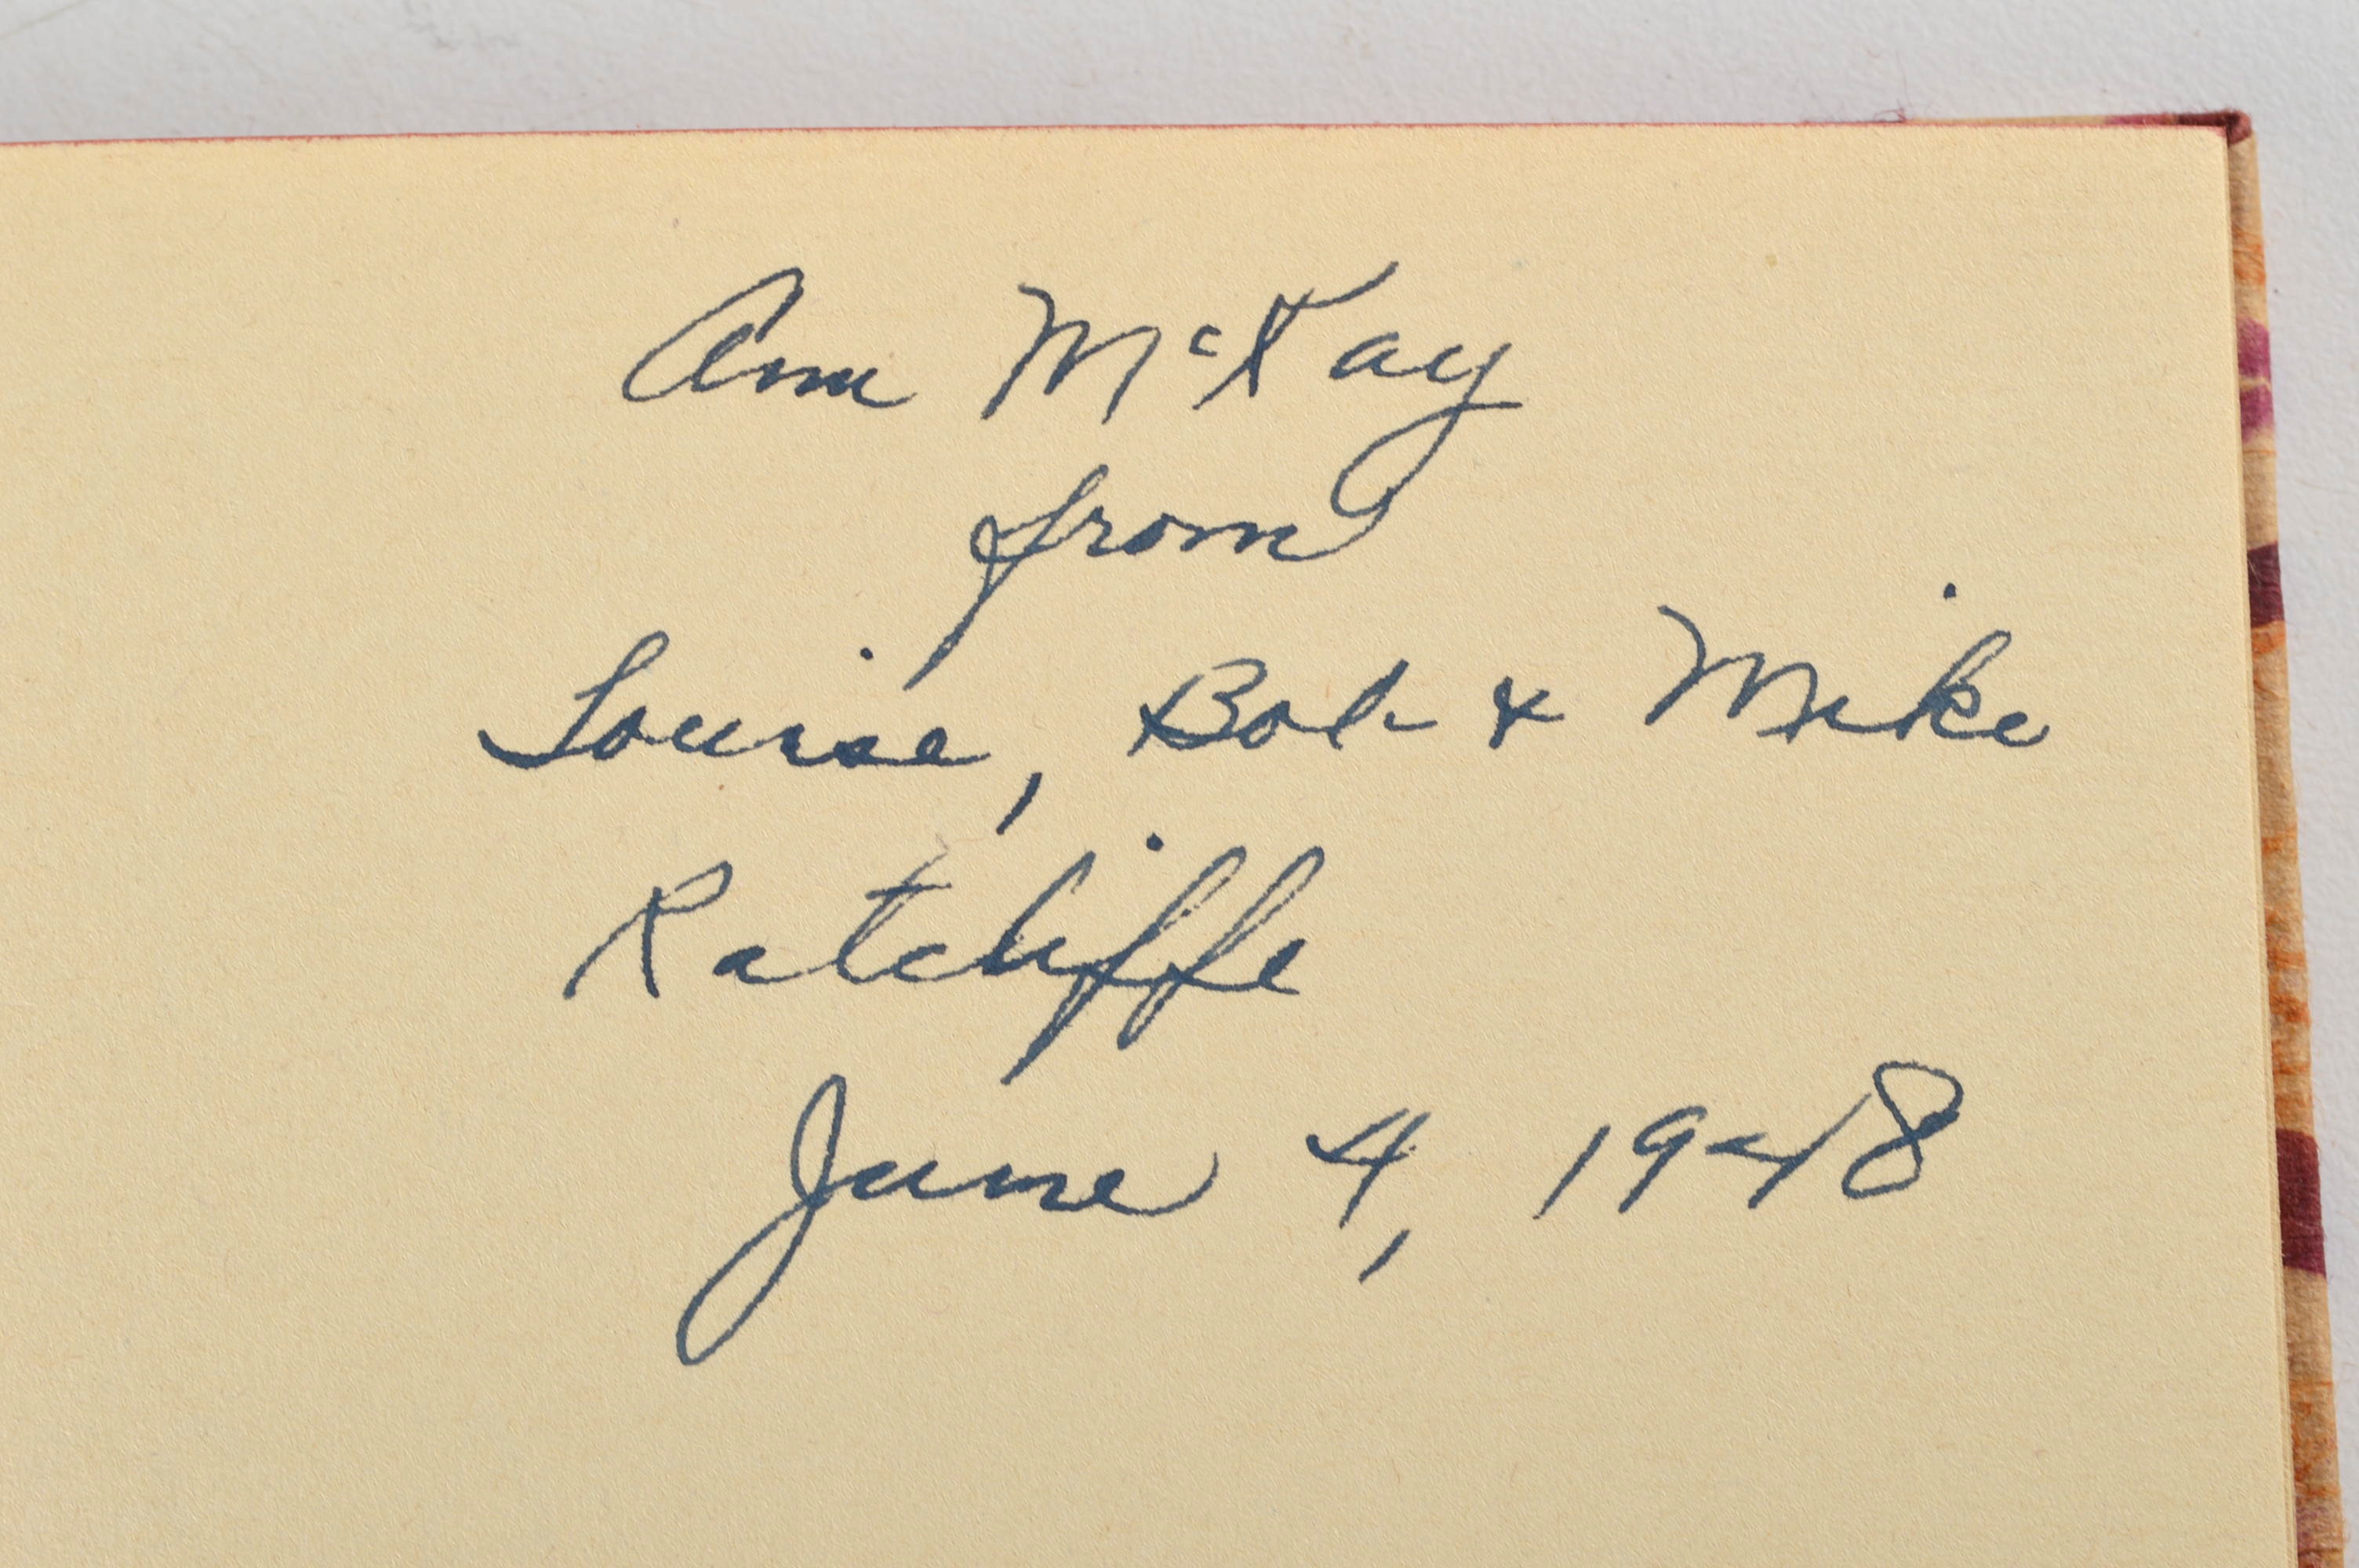 Ann McKay
from
Louise, Bob & Mike
Ratcliffe
June 4, 1948